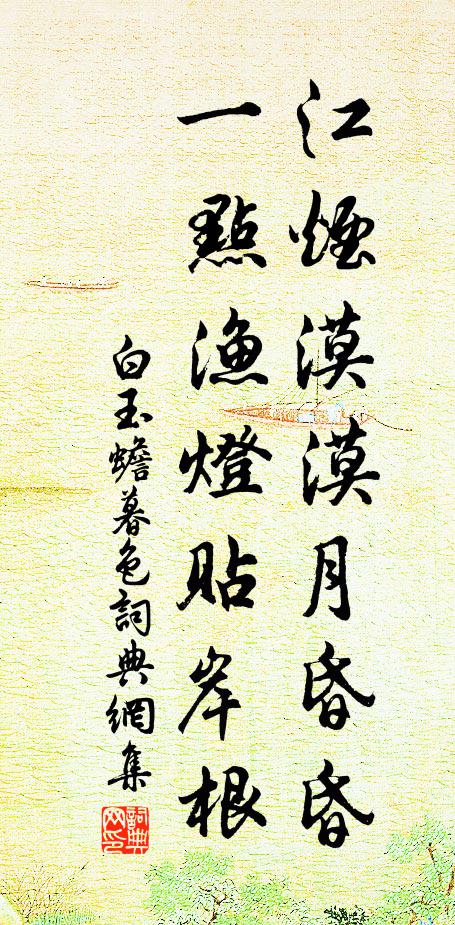 江煙漠漠月昏昏
一點漁燈貼岸根
白玉蟾暮色詞典網集
詞典
网印